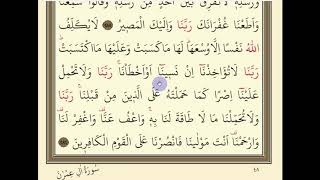 وَرُسُلِهِ لَا نُفَرِّقُ بَيْنَ اَحَدٍ مِنْ رُسُلِهِ وَقَالُوا سَمِعْنَا
وَاَطَعْنَا غُفْرَانَكَ رَبَّنَا وَاِلَيْكَ الْمَصِيرُ ﴿٢٨٥﴾ لَا يُكَلِّفُ
اللّٰهُ نَفْسًا اِلَّا وُسْعَهَا لَهَا مَا كَسَبَتْ وَعَلَيْهَا مَا اكْتَسَبَتْ
رَبَّنَا لَا تُؤَاخِذْنَا اِنْ نَسِينَا اَوْ اَخْطَأْنَا رَبَّنَا وَلَا تَحْمِلْ
عَلَيْنَا اِصْرًا كَمَا حَمَلْتَهُ عَلَى الَّذِينَ مِنْ قَبْلِنَا رَبَّنَا
وَلَا تُحَمِّلْنَا مَا لَا طَاقَةَ لَنَا بِهِ وَاعْفُ عَنَّا وَاغْفِرْ لَنَا
وَارْحَمْنَا اَنْتَ مَوْلٰينَا فَانْصُرْنَا عَلَى الْقَوْمِ الْكَافِرِينَ ﴿٢٨٦﴾
سُورَةُ اٰلِ عِمْرٰنَ ٤٨